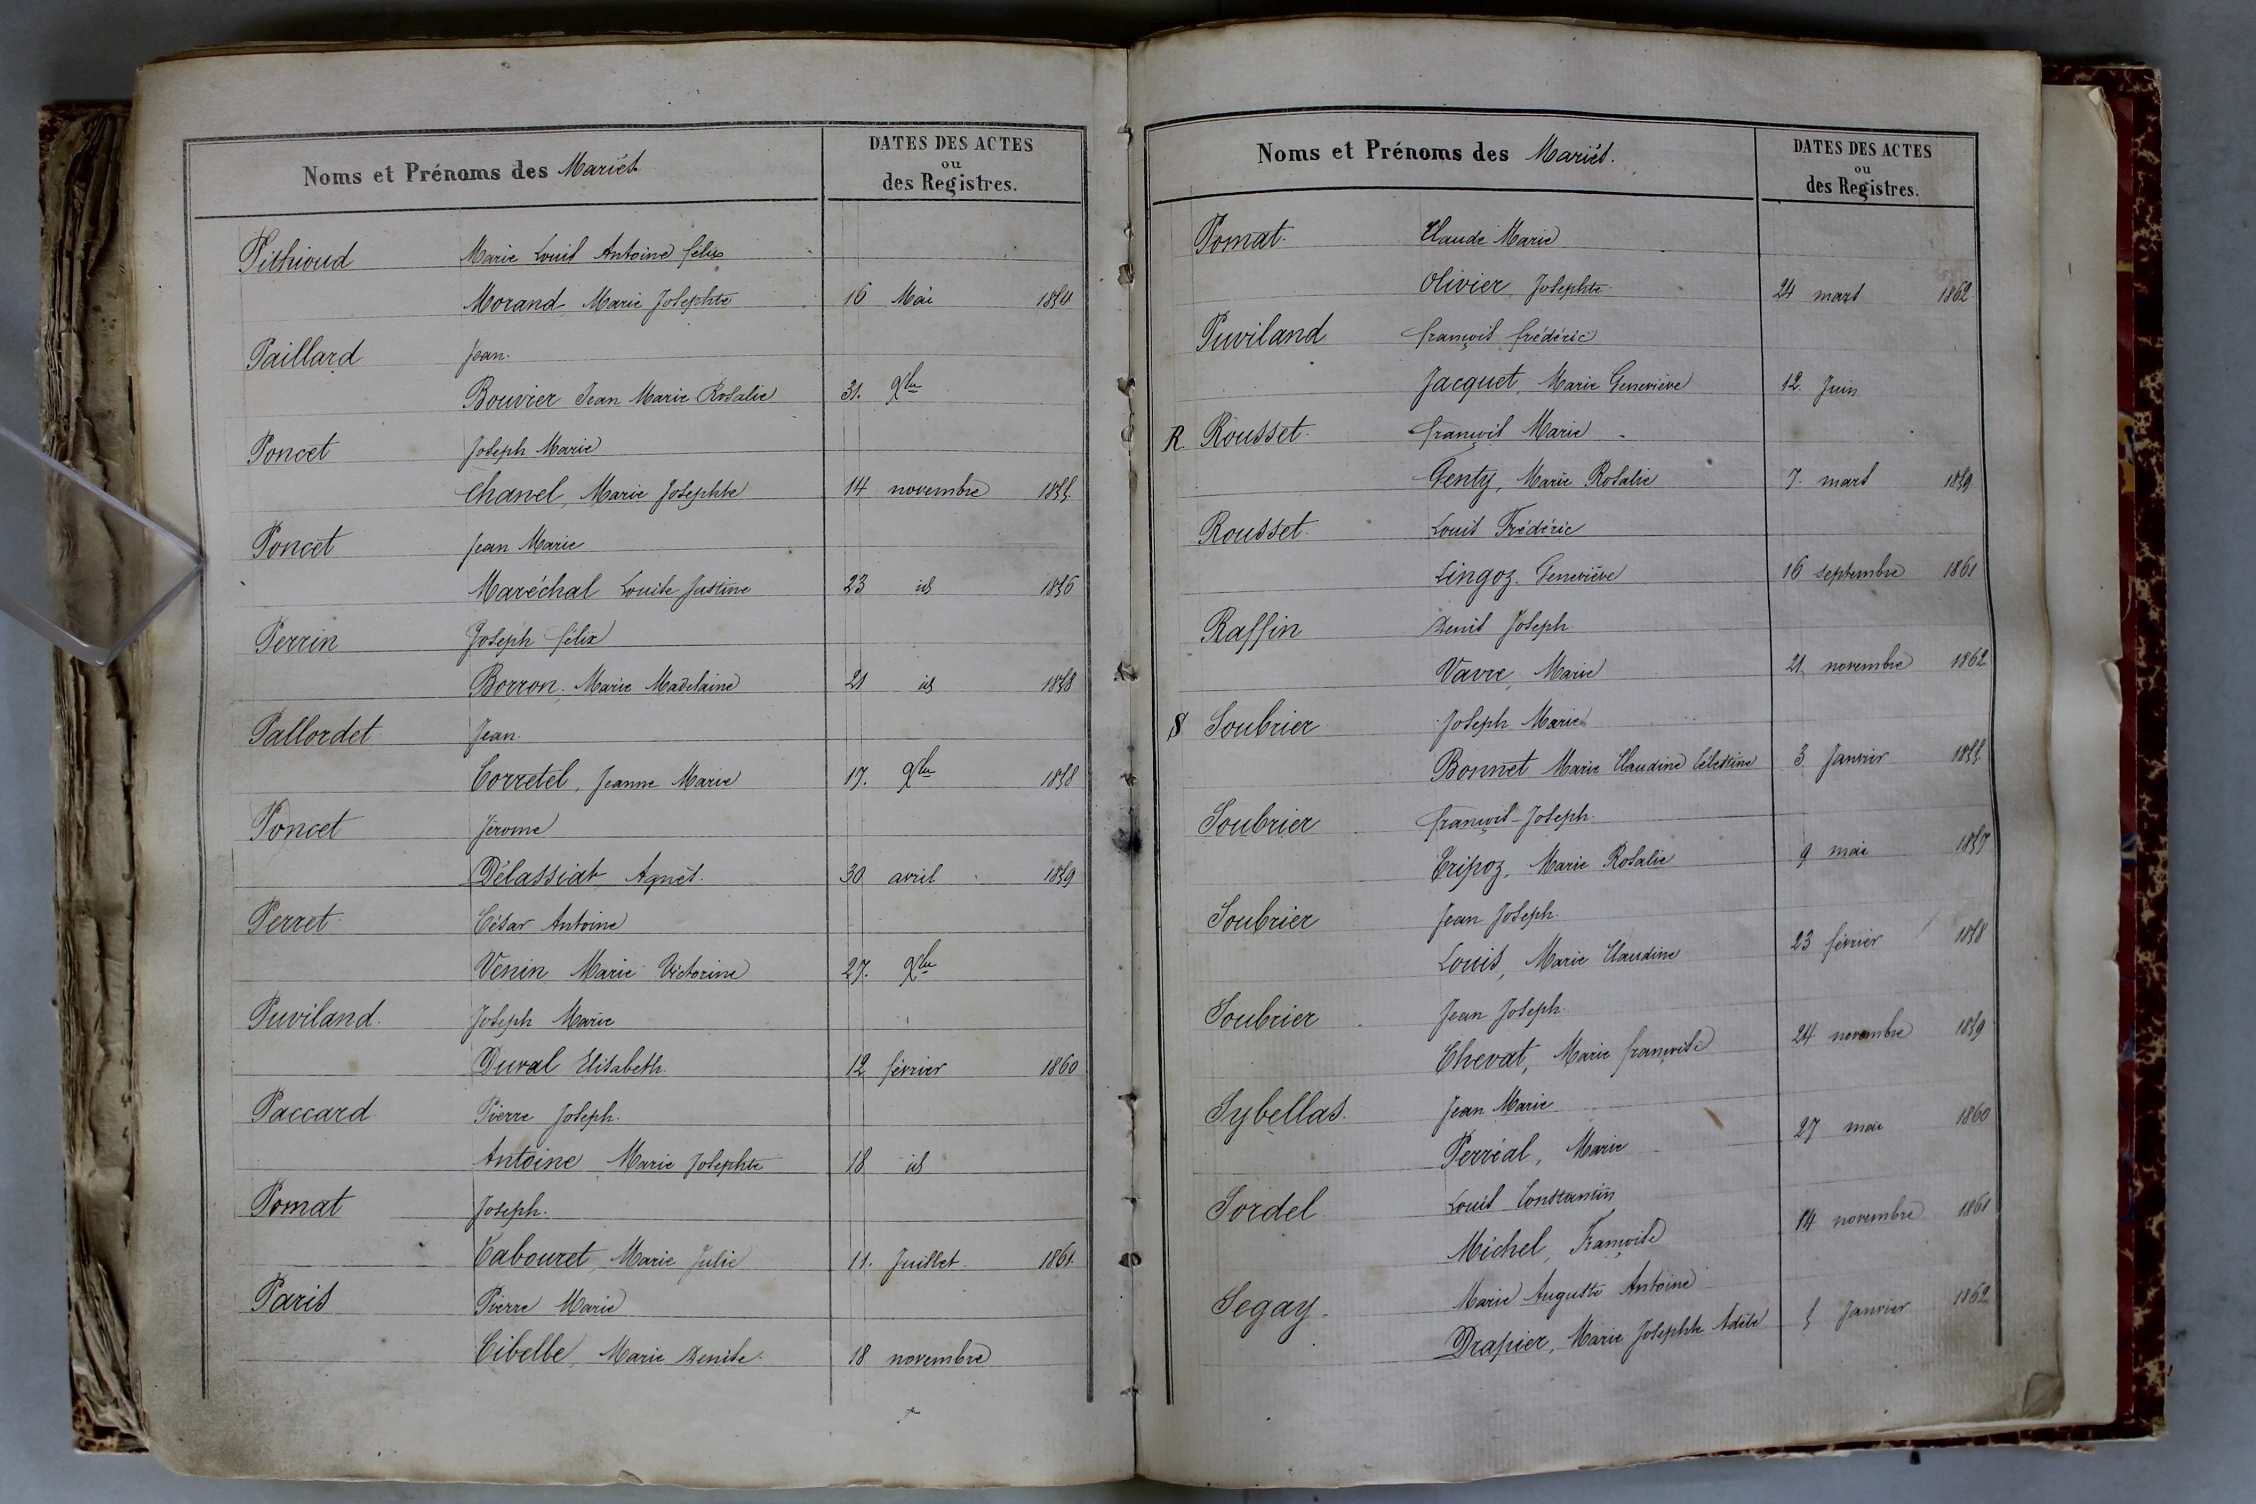 Noms et Prénoms des Mariés
DATES DES ACTES
ou
des Registres.
Pithioud Marie Louis Antoine félix
Morand Marie Josephte 16 Mai 1854
Paillard Jean.
Bouvier Jean Marie Rosalie 31. Xbre
Poncet Joseph Marie
Chanel, Marie Josephte 14 novembre 1855
Poncet Jean Marie
Maréchal Louise Justine 23 id 1856
Perrin Joseph félix
Borron. Marie Madelaine 21 id 1858
Pallordet Jean.
Corretel, Jeanne Marie 17. Xbre 1858
Poncet Jérome
Délassiat Agnès. 30 avril 1859
Perret César Antoine
Venin Marie Victorine 27. Xbre
Puviland. Joseph Marie
Duval Elisabeth. 12 février 1860
Paccard Pierre Joseph.
Antoine Marie Josephte 18 id
Pomat Joseph.
Cabouret, Marie Julie 11. Juillet 1861.
Paris Pierre Marie
Cibelle, Marie Denise. 18 novembre
Noms et Prénoms des Mariés.
DATES DES ACTES
ou
des Registres.
Pomat. Claude Marie
Olivier Josephte 24 mars 1862
Puviland françois frédéric
Jacquet, Marie Geneviève 12. Juin
R Rousset. françois Marie
Genty, Marie Rosalie 7. mars 1859
Rousset. Louis Frédéric
Lingoz. Geneviève 16 septembre 1861
Raffin Denis Joseph
Vavre, Marie 21 novembre 1862
S Soubrier Joseph Marie
Bonnet Marie Claudine Célestine 3 Janvier 1855
Soubrier françois-Joseph.
Tripoz, Marie Rosalie 9 mai 1857
Soubrier Jean Joseph.
Louis, Marie Claudine 23 février 1858
Soubrier Jean Joseph.
Chevat, Marie françoise 24 novembre 1859
Sybellas. Jean Marie
Perréal, Marie 27 mai 1860
Sordel Louis Constantin
Michel, Françoise 14 novembre 1861
Segay. Marie Auguste Antoine
Drapier, Marie Josephte Adèle 5 Janvier 1862